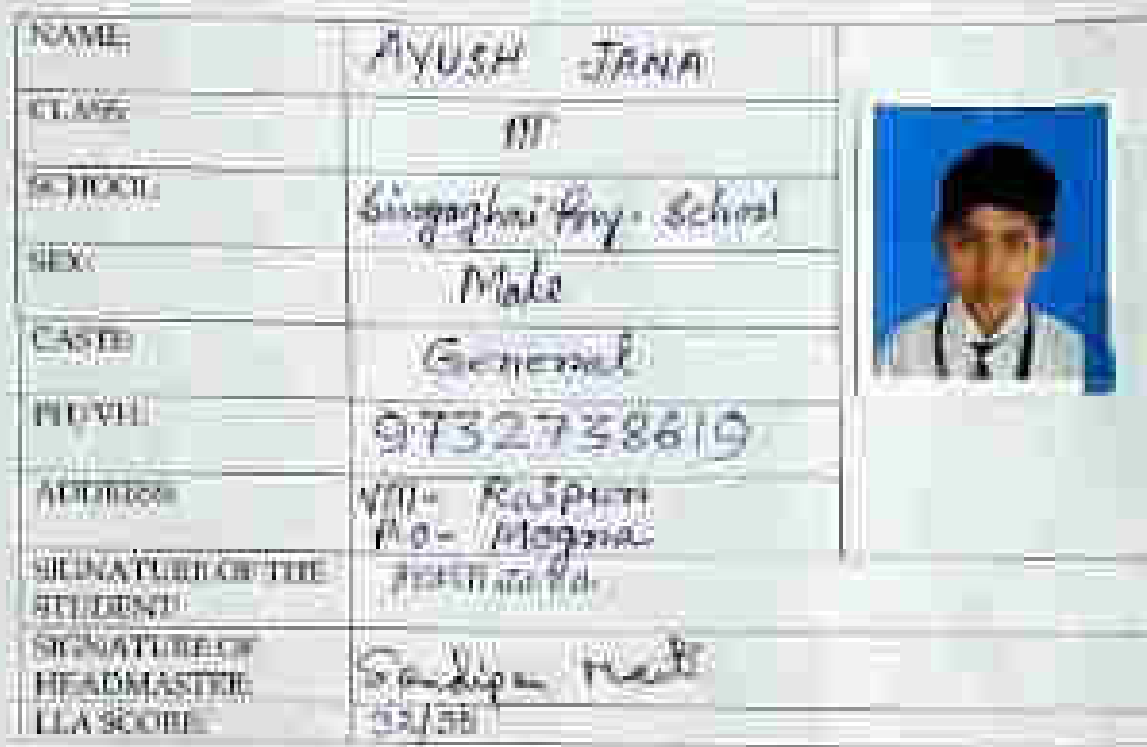 NAME: AYUSH JANA
CLASS: III
SCHOOL: School
SEX: Male
CASTE: General
PH/VH: 9732738619
ADDRESS: Vill- Rajpur
P.O- Mogra
SIGNATURE OF THE
STUDENT:
SIGNATURE OF
HEADMASTER: Sandipan
LLA SCORE: